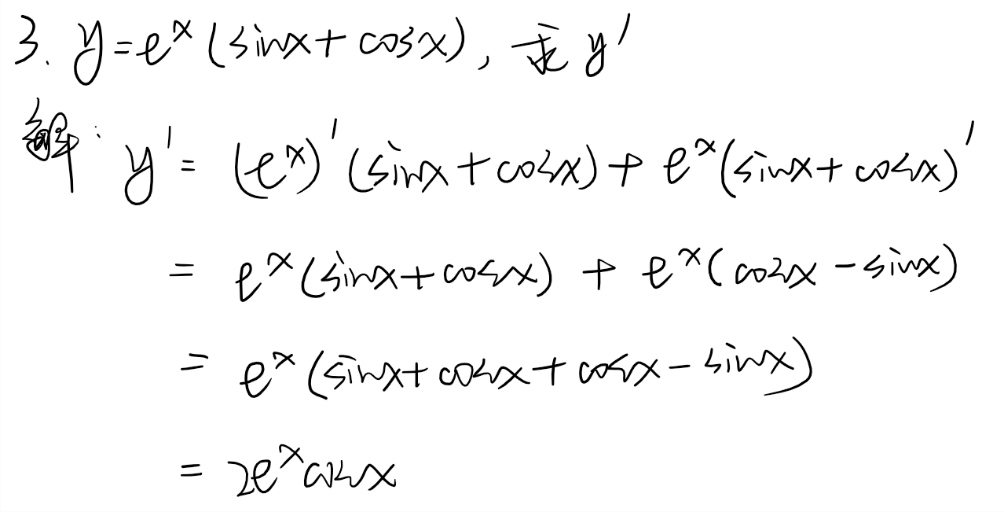 3. y=eˣ(sinx+cosx), 求y′
解: y′= (eˣ)′(sinx+cosx)+eˣ(sinx+cosx)′
= eˣ(sinx+cosx) + eˣ(cosx-sinx)
= eˣ(sinx+cosx+cosx-sinx)
= 2eˣcosx